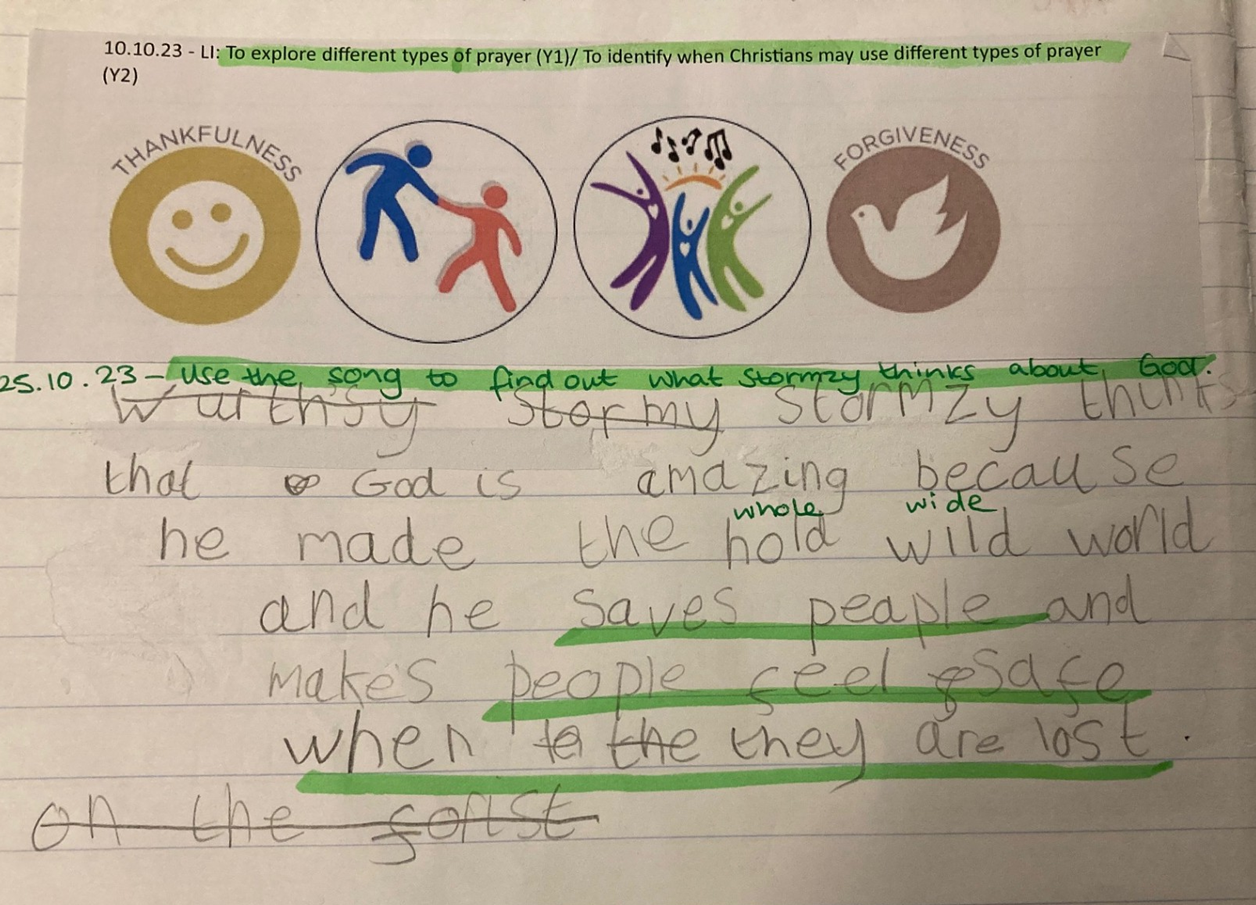 10.10.23 - LI: To explore different types of prayer (Y1)/ To identify when Christians may use different types of prayer
(Y2)
THANKFULNESS
FORGIVENESS
25.10.23 - use the song to find out what stormzy thinks about God.
wurthsy stormy stormzy thinks
that God is amazing because
whole wide
he made the hold wild world
and he saves peaple and
makes people feel safe
when te the they are lost.
on the